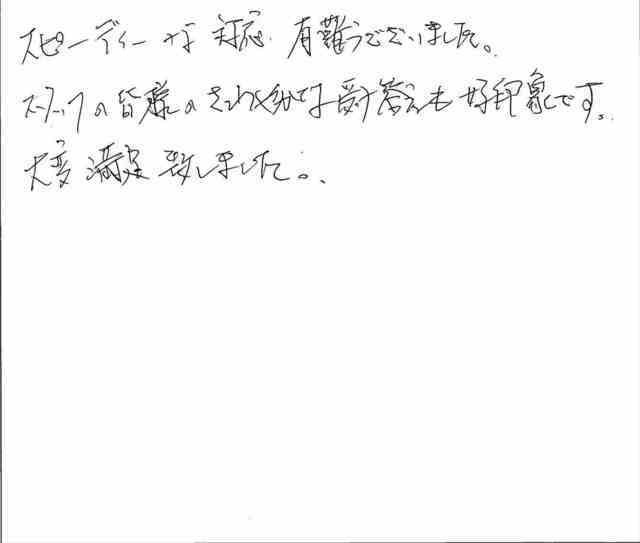 スピーディーな対応、有難うございました。
スタッフの皆様のさわやかな受け答えも好印象です。
大変満足致しました。